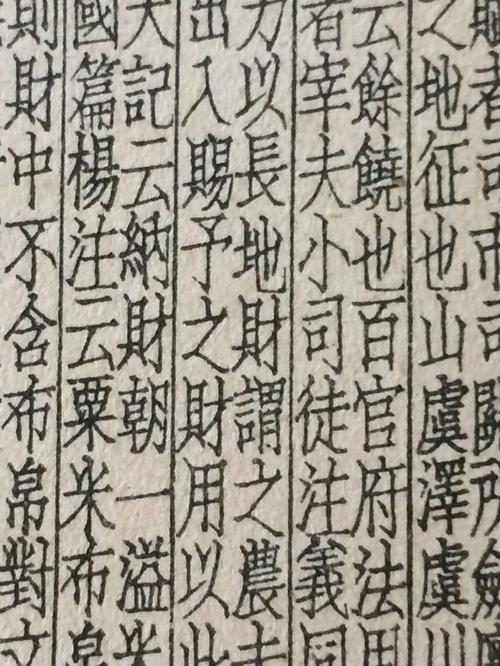 者司市司關所斂
之地征也山虞澤虞川
云餘饒也百官府法用
者宰夫小司徒注義同
力以長地財謂之農夫
出入賜予之財用以此
大記云納財朝一溢米
國篇楊注云粟米布帛
則財中不含布帛對文